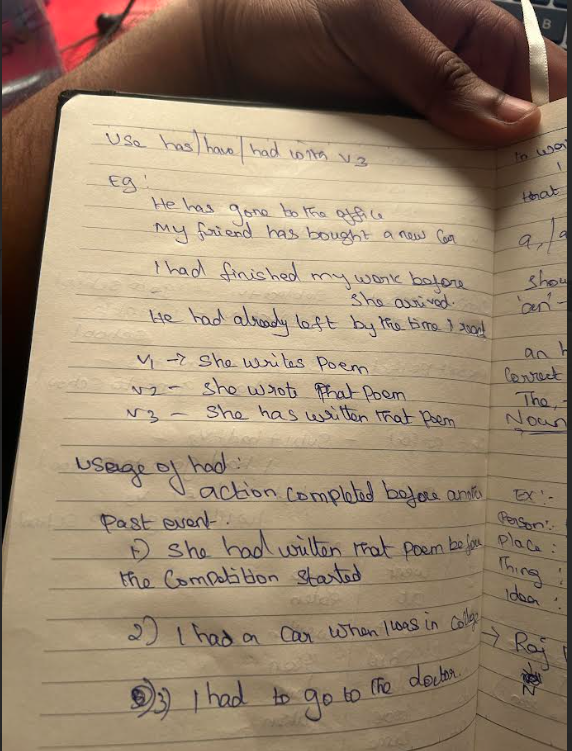 Use has/have/had with V3
Eg:
He has gone to the office
My friend has bought a new Car
I had finished my work before
she arrived.
He had already left by the time I
V1 → She writes Poem
V2 - She wrote that Poem
V3 - She has written that Poem
Usage of had:
action completed before
Past event.
1) She had written that Poem before
the Competition Started
2) I had a Car when I was in College
3) I had to go to the doctor.
in
that
a,
Shou
'an' -
an
Correct
The, -
Noun
Ex :-
Person:-
Place :
Thing :
Idea :
→ Raj
N